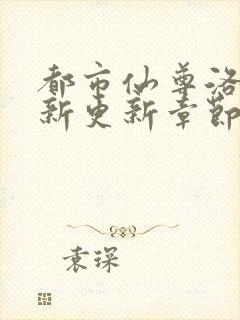 都市仙尊洛
新更新章節
袁琛